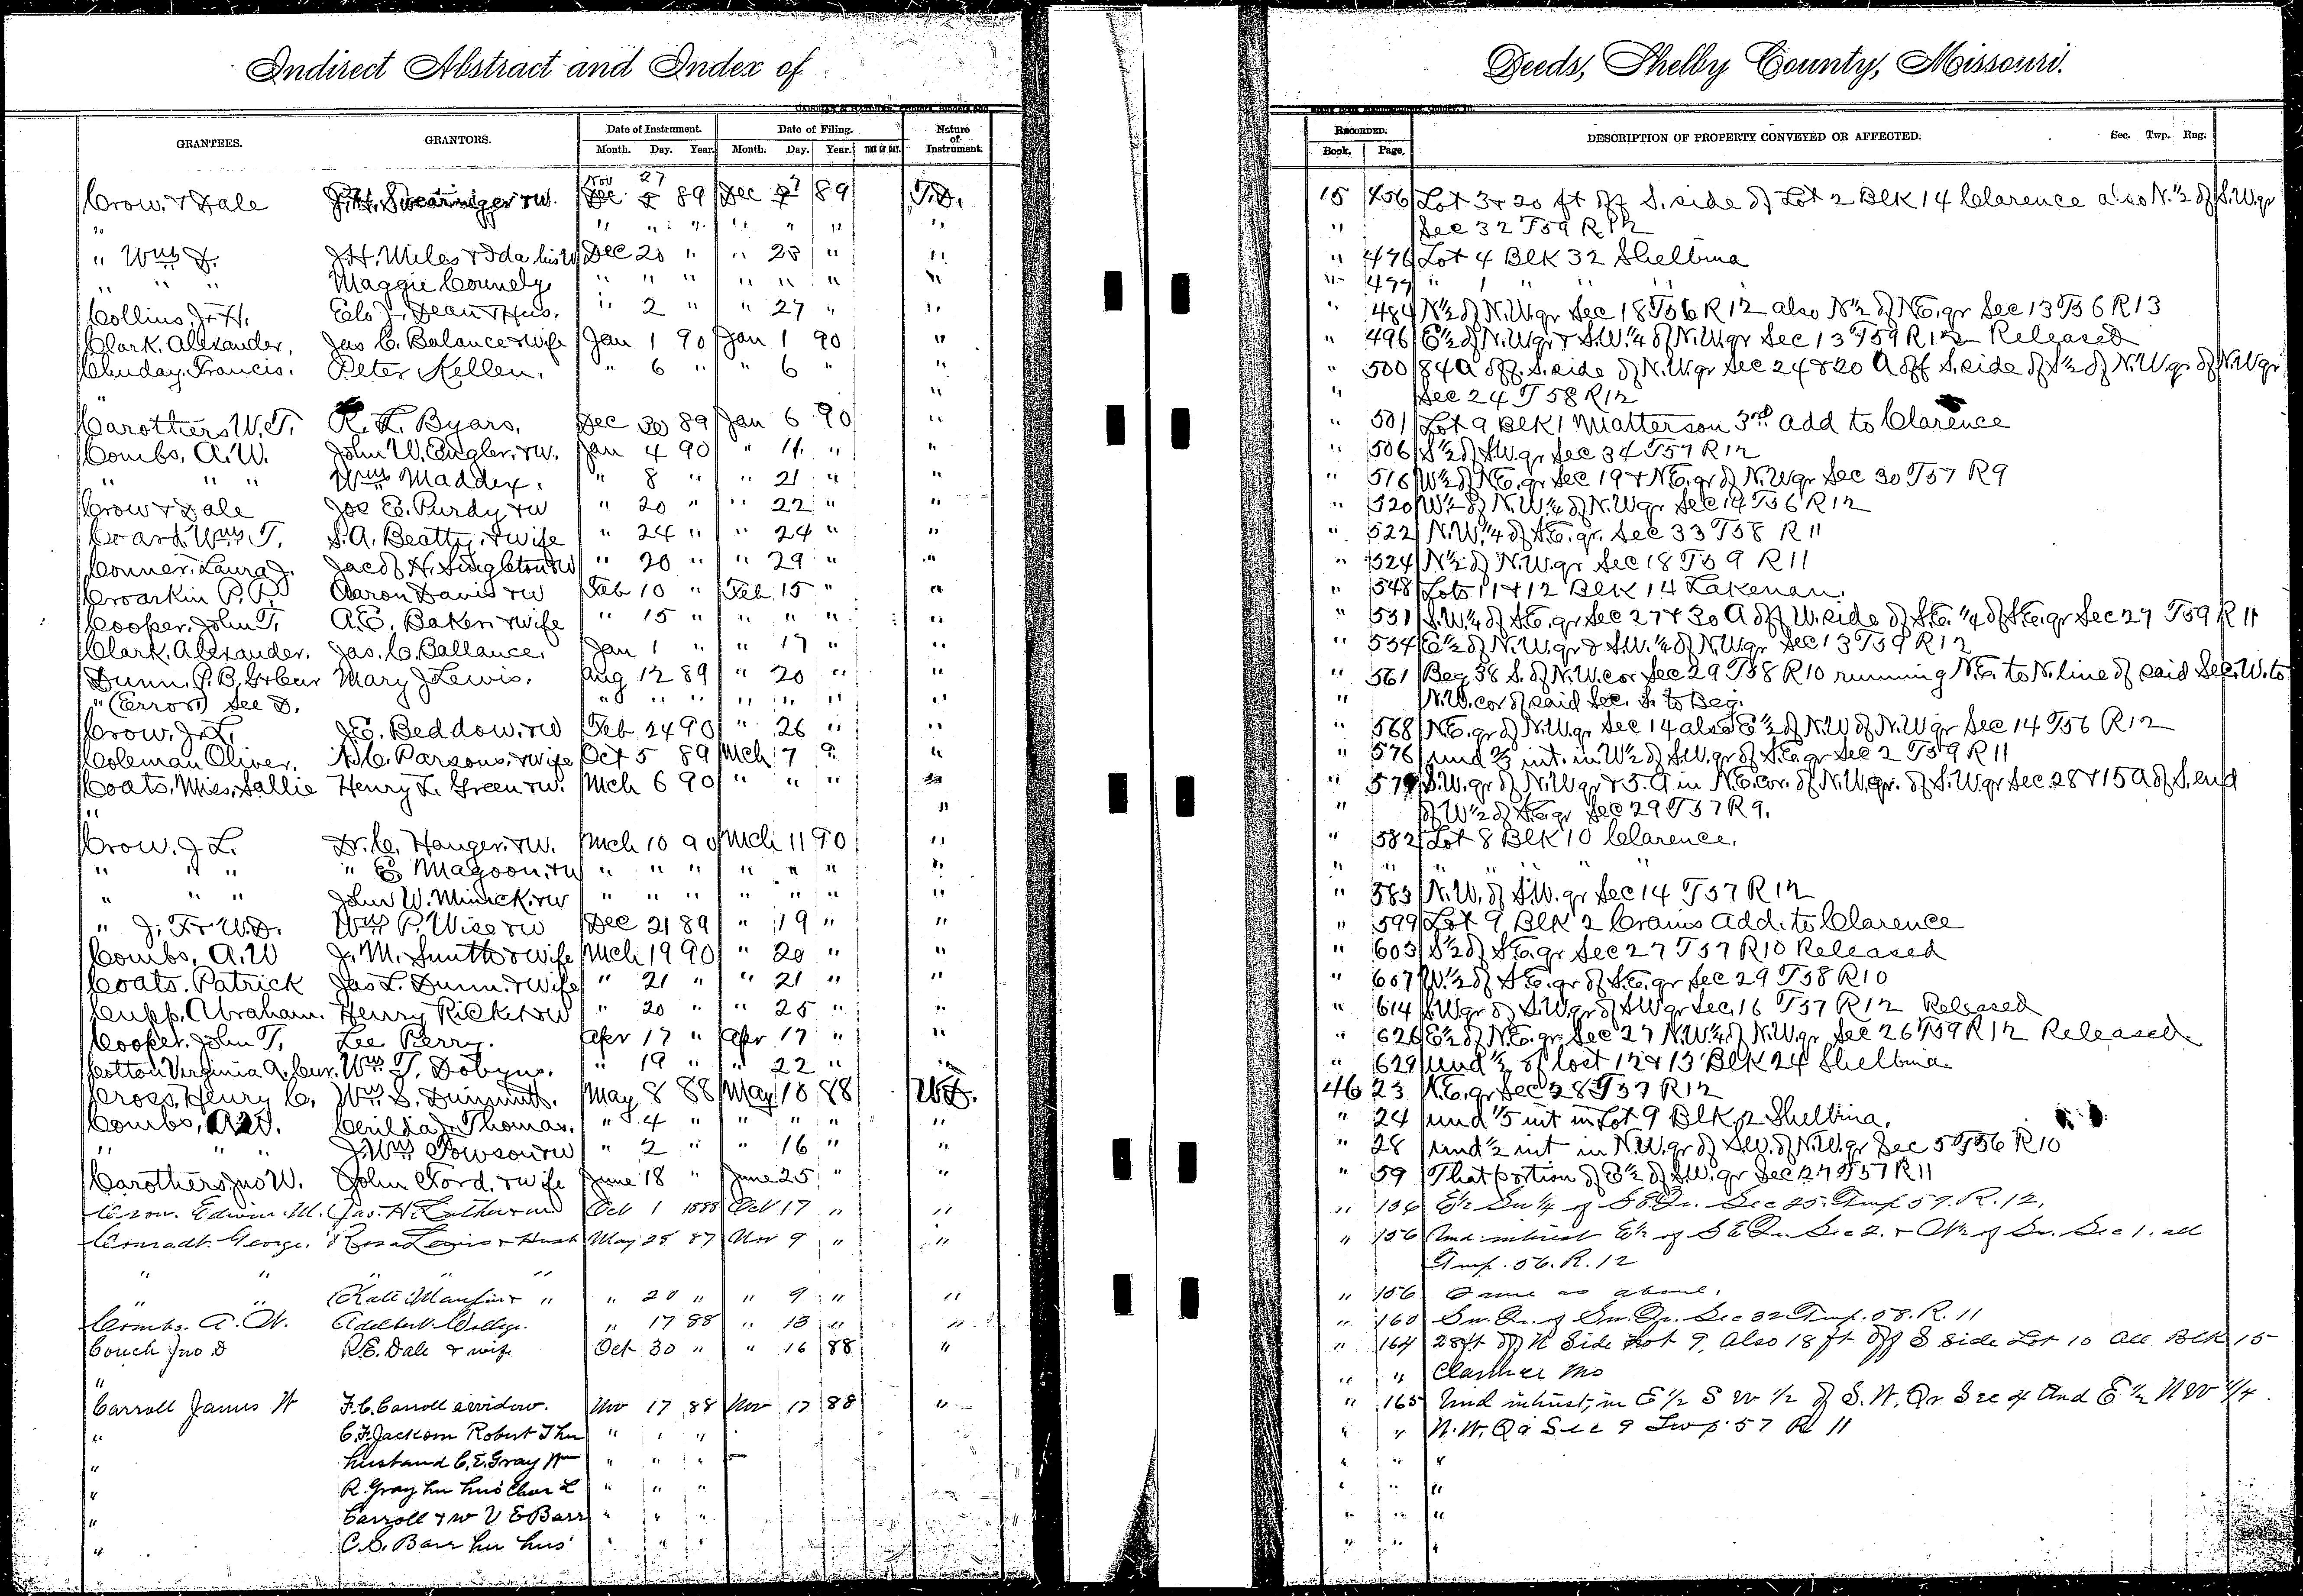 Indirect Abstract and Index of Deeds, Shelby County, Missouri.
GRANTEES. GRANTORS. Date of Instrument. Date of Filing. Nature of Instrument. RECORDED. DESCRIPTION OF PROPERTY CONVEYED OR AFFECTED. Sec. Twp. Rng.
Month. Day. Year. Month. Day. Year. TIME OF DAY. Book. Page.
Nov 27
Crow & Dale J.H. Swearinger & W. Dec 5 89 Dec 7 89 T.D. 15 456 Lot 3 & 20 ft off S. side of Lot 2 Blk 14 Clarence also N. 1/2 of S.W.qr
" " " " " " " " " Sec 32 T59 R12
" Wm D. J.H. Miles & Ida his W Dec 20 " " 23 " " " 476 Lot 4 Blk 32 Shelbina
" " " Maggie Connely " " " " " " " " 477 " " " "
Collins, J. H. Elo J. Dean & Hus. " 2 " " 27 " " " 484 N 1/2 of N.W.qr Sec 18 T56 R12 also N 1/2 of N.E.qr Sec 13 T56 R13
Clark, Alexander. Jas C. Balance & wife Jan 1 90 Jan 1 90 " " 496 E 1/2 of N.W.qr & S.W. 1/4 of N.W.qr Sec 13 T59 R12 Released
Chuday, Francis. Peter Kellen. " 6 " " 6 " " " 500 84 A off S. side of N.W.qr Sec 24 & 20 A off S. side of S 1/2 of N.W.qr of N.W.qr
" " " Sec 24 T58 R12
Carothers W.T. R. L. Byars. Dec 30 89 Jan 6 90 " " 501 Lot 9 Blk 1 Matterson 3rd add to Clarence
Combs, A.W. John W. Engler, & W. Jan 4 90 " 11 " " " 506 S 1/2 of S.W.qr Sec 34 T57 R12
" " " Wm Maddex. " 8 " " 21 " " " 516 W 1/2 of N.E.qr Sec 19 & N.E.qr of N.W.qr Sec 30 T57 R9
Crow & Dale Joe E. Purdy & W " 20 " " 22 " " " 520 W 1/2 of N.W. 1/4 of N.W.qr Sec 14 T56 R12
Coard Wm T. S.A. Beatty & wife " 24 " " 24 " " " 522 N.W. 1/4 of S.E.qr. Sec 33 T58 R11
Conner, Laura J. Jacob H. Singleton & W " 20 " " 29 " " " 524 N 1/2 of N.W.qr Sec 18 T59 R11
Croarkin P.P. Aaron Davis & W Feb 10 " Feb 15 " " " 548 Lots 11 & 12 Blk 14 Lakenan.
Cooper, John T. A.E. Baker & wife " 15 " " " " " " 551 S.W. 1/4 of S.E.qr Sec 27 & 30 A off W. side of S.E. 1/4 of S.E.qr Sec 27 T59 R11
Clark, Alexander. Jas. C. Ballance. Jan 1 " " 17 " " " 554 E 1/2 of N.W.qr & S.W. 1/4 of N.W.qr Sec 13 T59 R12
Dunn, P.B. Mary J Lewis. Aug 12 89 " 20 " " " 561 Beg 38 S. of N.W.cor Sec 29 T58 R10 running N.E. to N. line of said Sec. W. to
" (Error) See D. " " " " " " " " N.W. cor of said Sec. S. to Beg.
Crow, J.L. J.E. Beddow, & W Feb 24 90 " 26 " " " 568 N.E.qr of N.W.qr Sec 14 also E 1/2 of N.W. of N.W.qr Sec 14 T56 R12
Coleman Oliver. A.C. Parsons, & wife Oct 5 89 Mch 7 9 " " 576 und 2/3 int. in W 1/2 of S.W.qr of S.E.qr Sec 2 T59 R11
Coats, Miss, Sallie Henry L. Green & W. Mch 6 90 " " " " " 579 S.W.qr of N.W.qr & 5.A in N.E.cor. of N.W.qr. of S.W.qr Sec 28 & 15 A of S. end
" " " of W 1/2 of S.E.qr Sec 29 T57 R9.
Crow. J L. D.C. Hanger, & W. Mch 10 90 Mch 11 90 " " 582 Lot 8 Blk 10 Clarence.
" " " " E Magoon, & W " " " " " " " " " " " " "
" " " John W. Minick, & W " " " " " " " " 583 N.W. of S.W.qr Sec 14 T57 R12
" J. F & W.D. Wm P. Wise & W Dec 21 89 " 19 " " " 599 Lot 9 Blk 2 Crains Add. to Clarence
Combs, A.W J. M. Smith & wife Mch 19 90 " 20 " " " 603 S 1/2 of S.E.qr Sec 27 T57 R10 Released
Coats. Patrick Jas L. Dunn. & Wife " 21 " " 21 " " " 607 W. 1/2 of S.E.qr of S.E.qr Sec 29 T58 R10
Cupp, Abraham. Henry Ricket & W " 20 " " 25 " " " 614 S.W.qr of S.W.qr of S.W.qr Sec. 16 T57 R12 Released
Cooper, John T. Lee Perry. Apr 17 " Apr 17 " " " 626 E 1/2 of N.E.qr Sec 27 N.W. 1/4 of N.W.qr Sec 26 T59 R12 Released
Cotton Virginia A. Wm T. Dobyns. " 19 " " 22 " " " 629 und 1/2 of lost 12 & 13 Blk 24 Shelbina
Cross, Henry C. Wm S. Dimmitt. May 8 88 May 10 88 W.D. 46 23 N.E.qr Sec 28 T57 R12
Combs, A.W. Cerilda J. Thomas. " 4 " " " " " " 24 und 1/5 int in Lot 9 Blk 2 Shelbina.
" " " J. Wm Towson & W " 2 " " 16 " " " 28 und 1/2 int in N.W.qr of S.W. of N.W.qr Sec 5 T56 R10
Carothers, Jno W. John Ford. & wife June 18 " June 25 " " " 59 That portion of E 1/2 of S.W.qr Sec 27 T57 R11
Crow. Edwin. M. Jas. H. Oct 1 1888 Oct 17 " " " 136 E 1/2 Sw 1/4 of S E. Qr. Sec 25. Twp 57. R. 12.
Conradt. George. Rosa Lewis & Husb May 25 87 Nov 9 " " " 156 Und interest E 1/2 of S E Qr. Sec 2. & Sec 1. all
" " " " " Twp. 56. R. 12
" " Kate " " 20 " " 9 " " " 156 Same as above.
Combs. A. W. Adelbert College. " 17 88 " 13 " " " 160 Sw. Qr. of Sw. Qr. Sec 32 Twp. 58. R. 11
Couch Jno D R.E. Dale & wife Oct 30 " " 16 88 " " 164 28 ft off N Side Lot 9, Also 18 ft off S side Lot 10 all Blk 15
" " " Clarence Mo
Carroll James W F.C. Carroll a widow. Nov 17 88 Nov 17 88 " " 165 Und intrust, in E 1/2 S W 1/2 of S. W. Qr Sec 4 And E 1/2 N W 1/4
" C.F. Jackson Robert J her " " " " " N.W. Qr Sec 9 Twp 57 R 11
" husband C.E. Gray Wm " " " " " "
" R. Gray her hus Chas L " " " " " "
" Carroll & w V E Barr " " " " " "
" C.S. Barr her hus " " " " " "